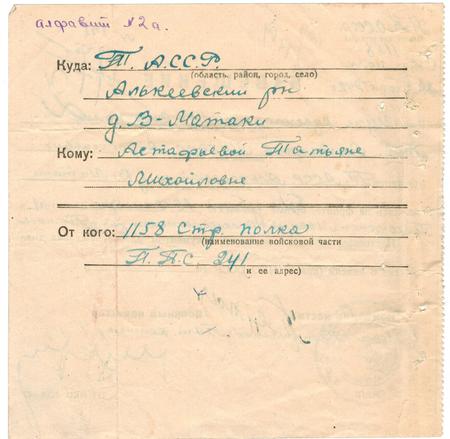 алфавит №2а.
Куда: Т. АССР.
(область, район, город, село)
Алькеевский р-н
д. В-Матаки
Кому: Астафьевой Татьяне
Михайловне
От кого: 1158 Стр. полка
(наименование войсковой части
П.П.С. 241
и ее адрес)